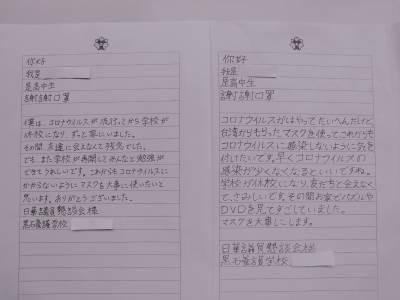 你好
我是
是高中生
謝謝口罩
僕は、コロナウイルスが流行ってから学校が
休校になり、ずっと家にいました。
その間、友達に会えなくて残念でした。
でも、また学校が再開してみんなと勉強が
できてうれしいです。これからもコロナウイルスに
かからないようにマスクを大事に使いたいと
思います。ありがとうございました。
日華議員懇談会様
黒石養護学校
你好
我是
是高中生
謝謝口罩
コロナウイルスがはやってたいへんだけど、
台湾からもらったマスクを使ってこれからも
コロナウイルスに感染しないように気を
付けたいです。早くコロナウイルスの
感染が少なくなるといいですね。
学校が休校になり、友だちと会えなく
て、さみしいです。その間お家でパズルや
DVDを見てすごしていました。
マスクを大事にします。
日華議員懇談会様
黒石養護学校